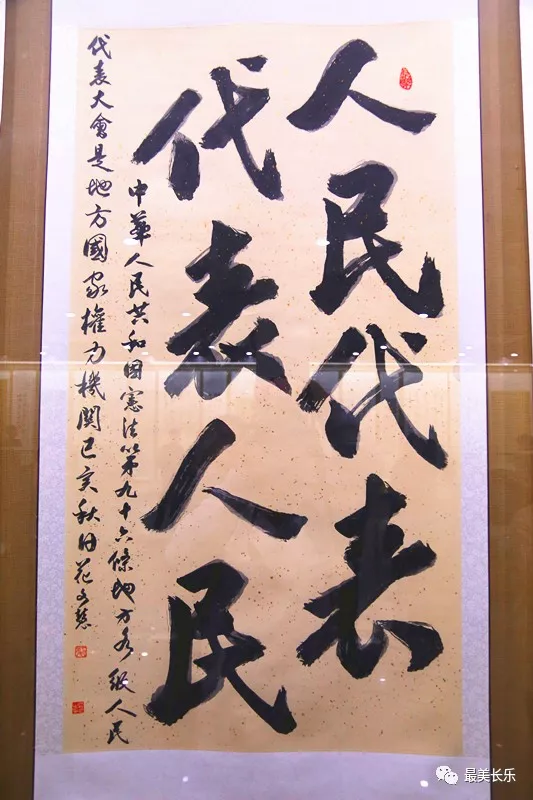 人民代表
代表人民
中華人民共和国憲法第九十六條地方各级人民
代表大會是地方國家權力機関己亥秋日花文慧
最美长乐